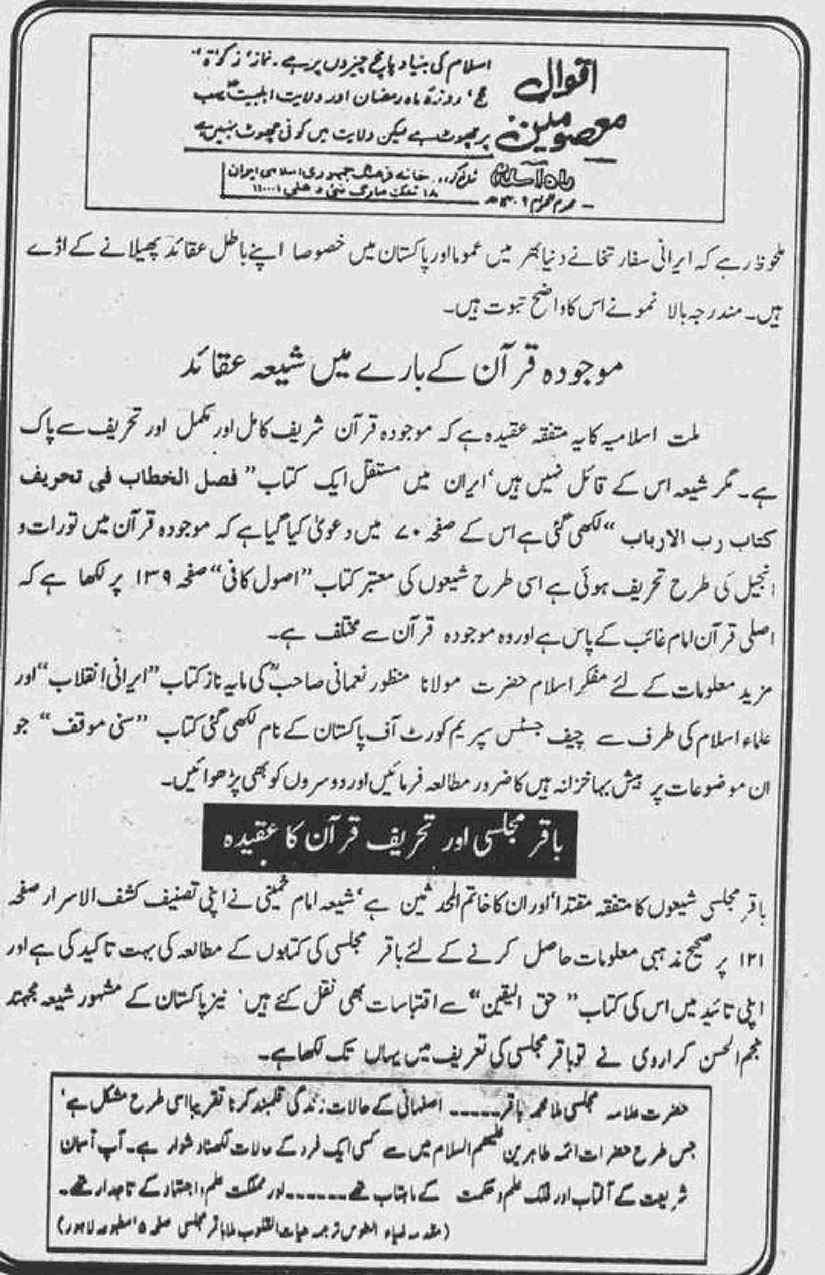 اقوال معصومین
اسلام کی بنیاد پانچ چیزوں پر ہے۔ نماز، زکوٰۃ،
حج، روزۂ ماہ رمضان اور ولایت اہلبیتؑ سب
پر چھوٹ ہے لیکن ولایت میں کوئی چھوٹ نہیں ہے
راہ اسلام
خانہ فرہنگ جمہوری اسلامی ایران
۱۸ تلک مارگ نئی دہلی ۱۱۰۰۰۱
محرم الحرام ۱۴۰۹ھ
ملحوظ رہے کہ ایرانی سفارتخانے دنیا بھر میں عموما اور پاکستان میں خصوصا اپنے باطل عقائد پھیلانے کے اڈے
ہیں۔ مندرجہ بالا نمونے اس کا واضح ثبوت ہیں۔
موجودہ قرآن کے بارے میں شیعہ عقائد
ملت اسلامیہ کا یہ متفقہ عقیدہ ہے کہ موجودہ قرآن شریف کامل اور مکمل اور تحریف سے پاک
ہے۔ مگر شیعہ اس کے قائل نہیں ہیں، ایران میں مستقل ایک کتاب "فصل الخطاب فی تحریف
کتاب رب الارباب" لکھی گئی ہے اس کے صفحہ ۷۰ میں دعویٰ کیا گیا ہے کہ موجودہ قرآن میں تورات و
انجیل کی طرح تحریف ہوئی ہے اسی طرح شیعوں کی معتبر کتاب "اصول کافی" صفحہ ۱۳۹ پر لکھا ہے کہ
اصلی قرآن امام غائب کے پاس ہے اور وہ موجودہ قرآن سے مختلف ہے۔
مزید معلومات کے لئے مفکر اسلام حضرت مولانا منظور نعمانی صاحبؒ کی مایہ ناز کتاب "ایرانی انقلاب" اور
علماء اسلام کی طرف سے چیف جسٹس سپریم کورٹ آف پاکستان کے نام لکھی گئی کتاب "سنی موقف" جو
ان موضوعات پر بیش بہا خزانہ ہیں کا ضرور مطالعہ فرمائیں اور دوسروں کو بھی پڑھوائیں۔
باقر مجلسی اور تحریف قرآن کا عقیدہ
باقر مجلسی شیعوں کا متفقہ مقتدا، اور ان کا خاتم المحدثین ہے، شیعہ امام خمینی نے اپنی تصنیف کشف الاسرار صفحہ
۱۲۱ پر صحیح مذہبی معلومات حاصل کرنے کے لئے باقر مجلسی کی کتابوں کے مطالعہ کی بہت تاکید کی ہے اور
اپنی تائید میں اس کی کتاب "حق الیقین" سے اقتباسات بھی نقل کئے ہیں، نیز پاکستان کے مشہور شیعہ مجتہد
نجم الحسن کراروی نے تو باقر مجلسی کی تعریف میں یہاں تک لکھا ہے۔
حضرت علامہ مجلسی ملا محمد باقر۔۔۔۔۔ اصفہانی کے حالات زندگی قلمبند کرنا تقریبا اسی طرح مشکل ہے،
جس طرح حضرات ائمہ طاہرین علیھم السلام میں سے کسی ایک فرد کے حالات لکھنا دشوار ہے۔ آپ آسمان
شریعت کے آفتاب اور فلک علم و حکمت کے ماہتاب تھے۔۔۔۔۔۔ اور مملکت علم و اجتہاد کے تاجدار تھے۔
(مقدمہ ضیاء العلوس ترجمہ حیات القلوب ملا باقر مجلسی صفحہ ۵ مطبوعہ لاہور)